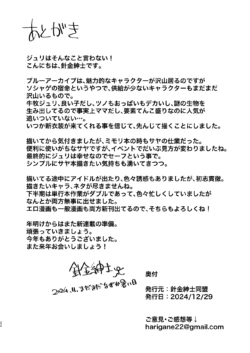 あとがき
ジュリはそんなこと言わない!
こんにちは、針金紳士です。
ブルーアーカイブは、魅力的なキャラクターが沢山居るのですが
ソシャゲの宿命というやつで、供給が少ないキャラクターもまだまだ
沢山いるもので。
牛牧ジュリ、良い子だし、ツノもおっぱいもデカいし、謎の生物を
生み出してるので事実上ママだし、要素てんこ盛りなのに人気が
追いついていない…。
いつか新衣装が来てくれる事を信じて、先んじて描くことにしました。
描いてから気付きましたが、ミモリ本の時もサヤの仕業だった。
便利に使いがちなサヤですが、イベントでだいぶ見方が変わりましたね。
最終的にジュリは幸せなのでセーフという事で。
シンプルにサヤ本描きたい気持ちも湧いてきつつ。
描いてる途中にアイドルが出たり、色々誘惑もありましたが、初志貫徹。
描きたいキャラ、ネタが尽きませんね。
下半期は単行本作業がダブルであって、色々忙しくしていましたが
なんとか両方無事に出せました。
エロ漫画も一般漫画も両方新刊出てるので、そちらもよろしくね!
年明けからはまた新連載の準備。
頑張っていきましょう。
今年もありがとうございました。
また来年お会いしましょう!
針金紳士
2024.11.
奥付
発行元:針金紳士同盟
発行日:2024/12/29
ご意見・ご感想等↓
harigane22@gmail.com